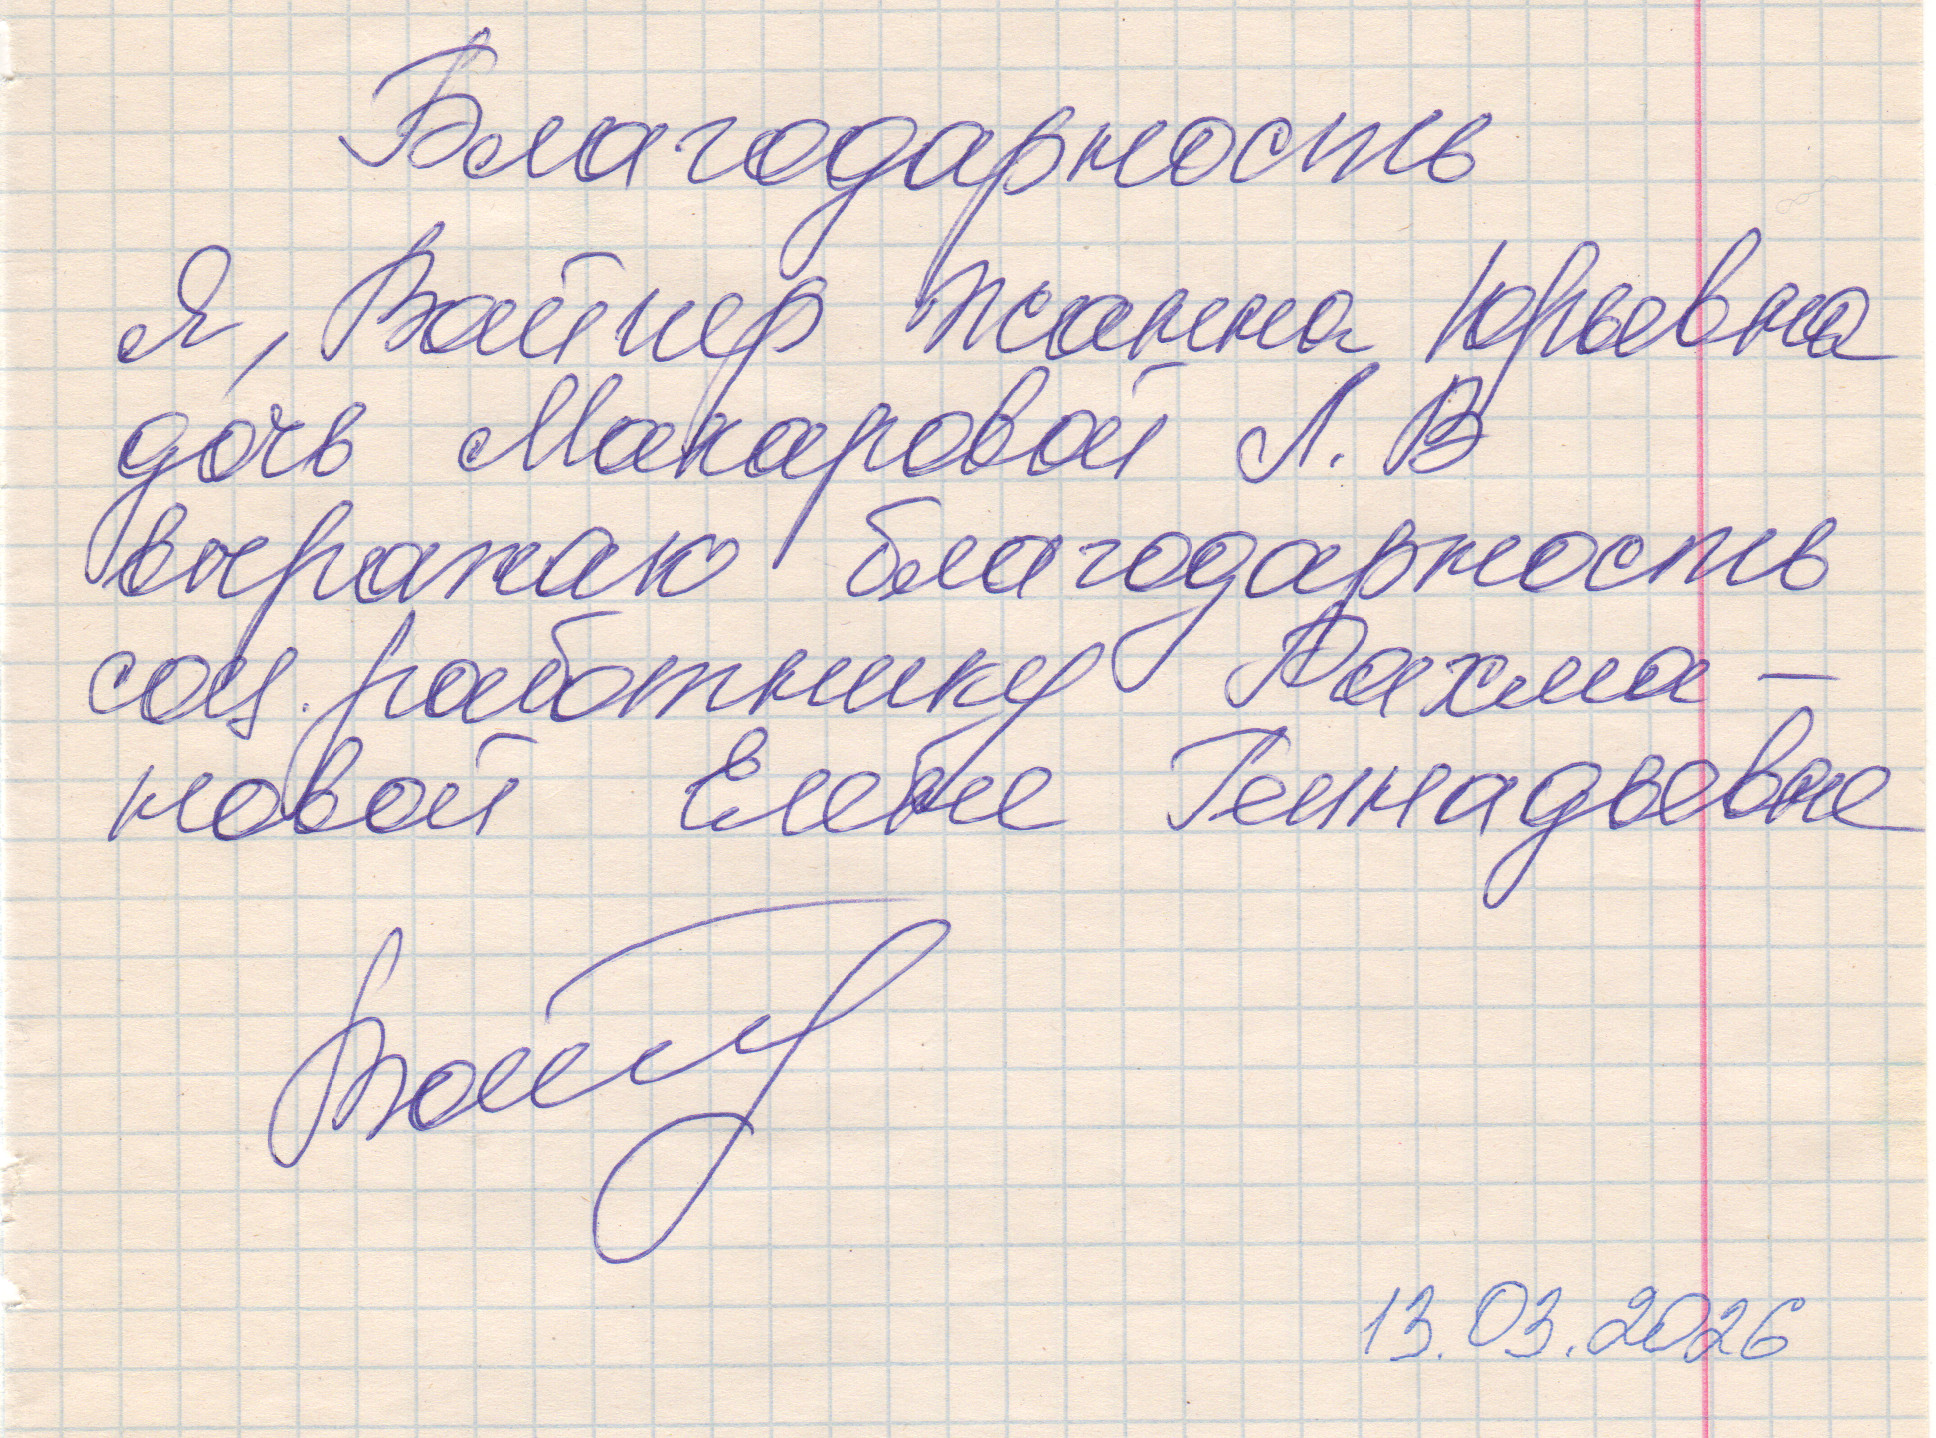 Благодарность
Я, Вайнер Жанна Юрьевна
дочь Макаровой Л. В
выражаю благодарность
соц. работнику Рахма-
новой Елене Геннадьевне
13.03.2026